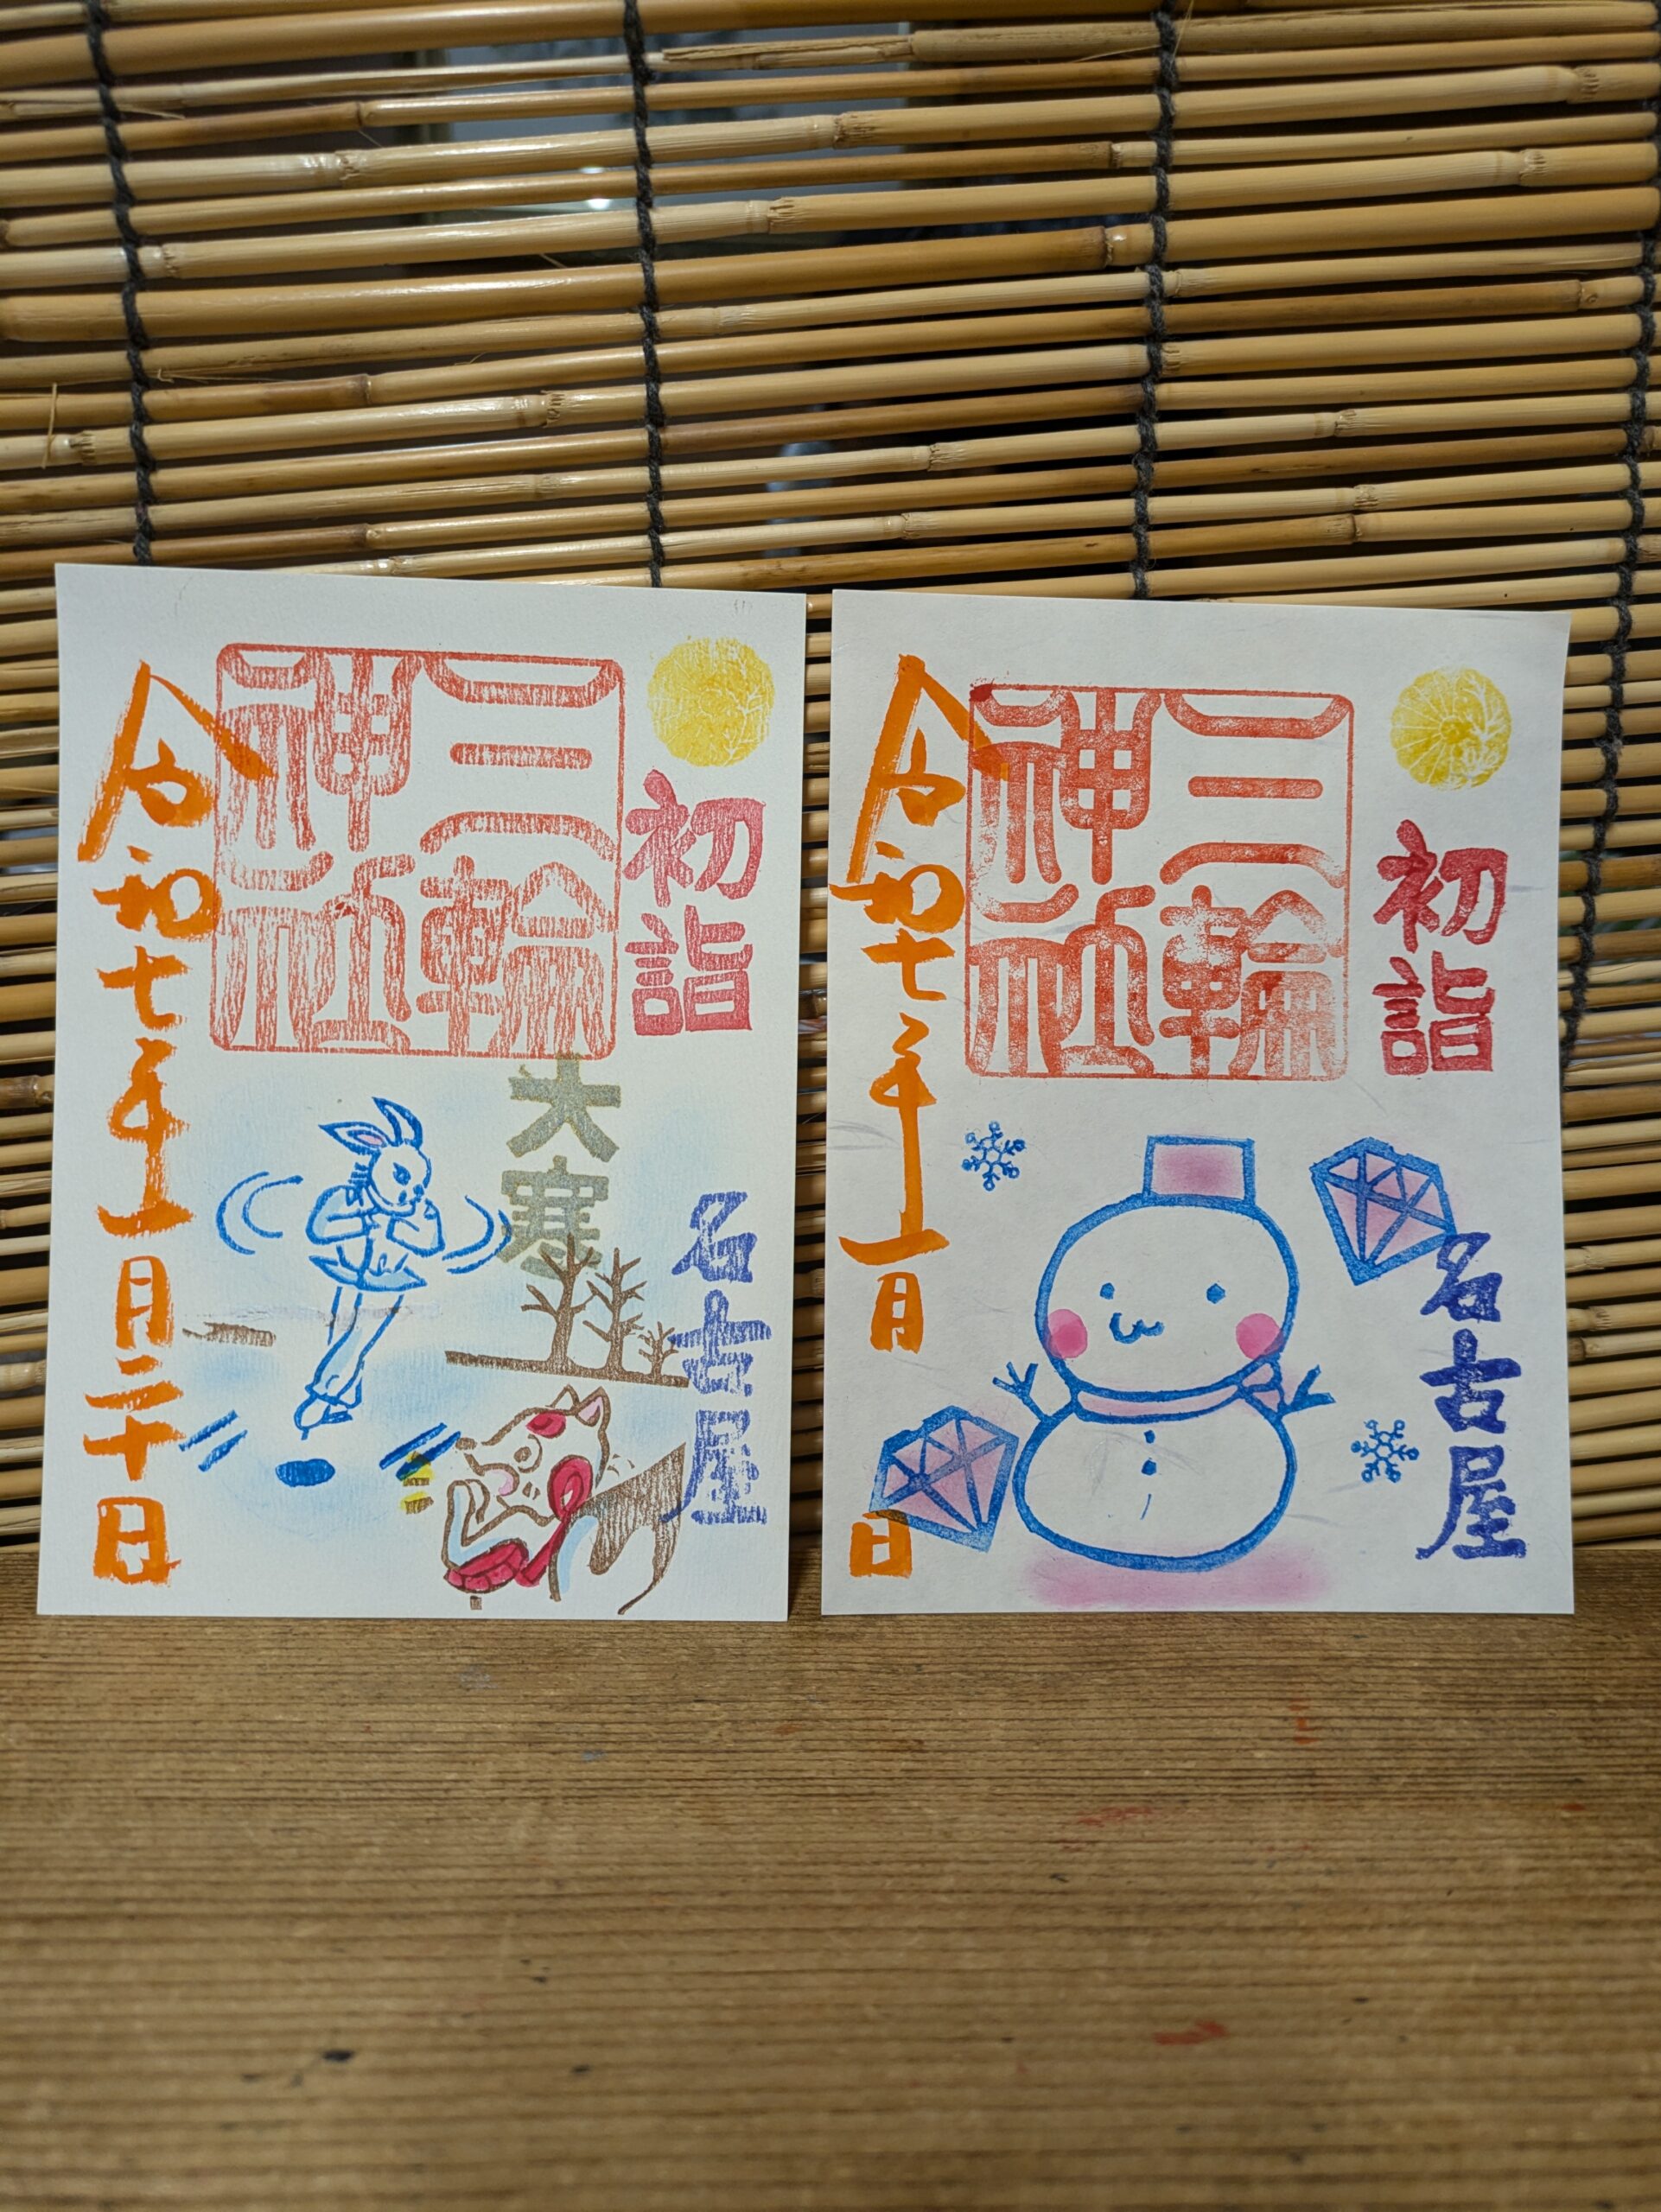 三輪神社
初詣
大寒
名古屋
令和七年一月二十日
三輪神社
初詣
名古屋
令和七年一月
日